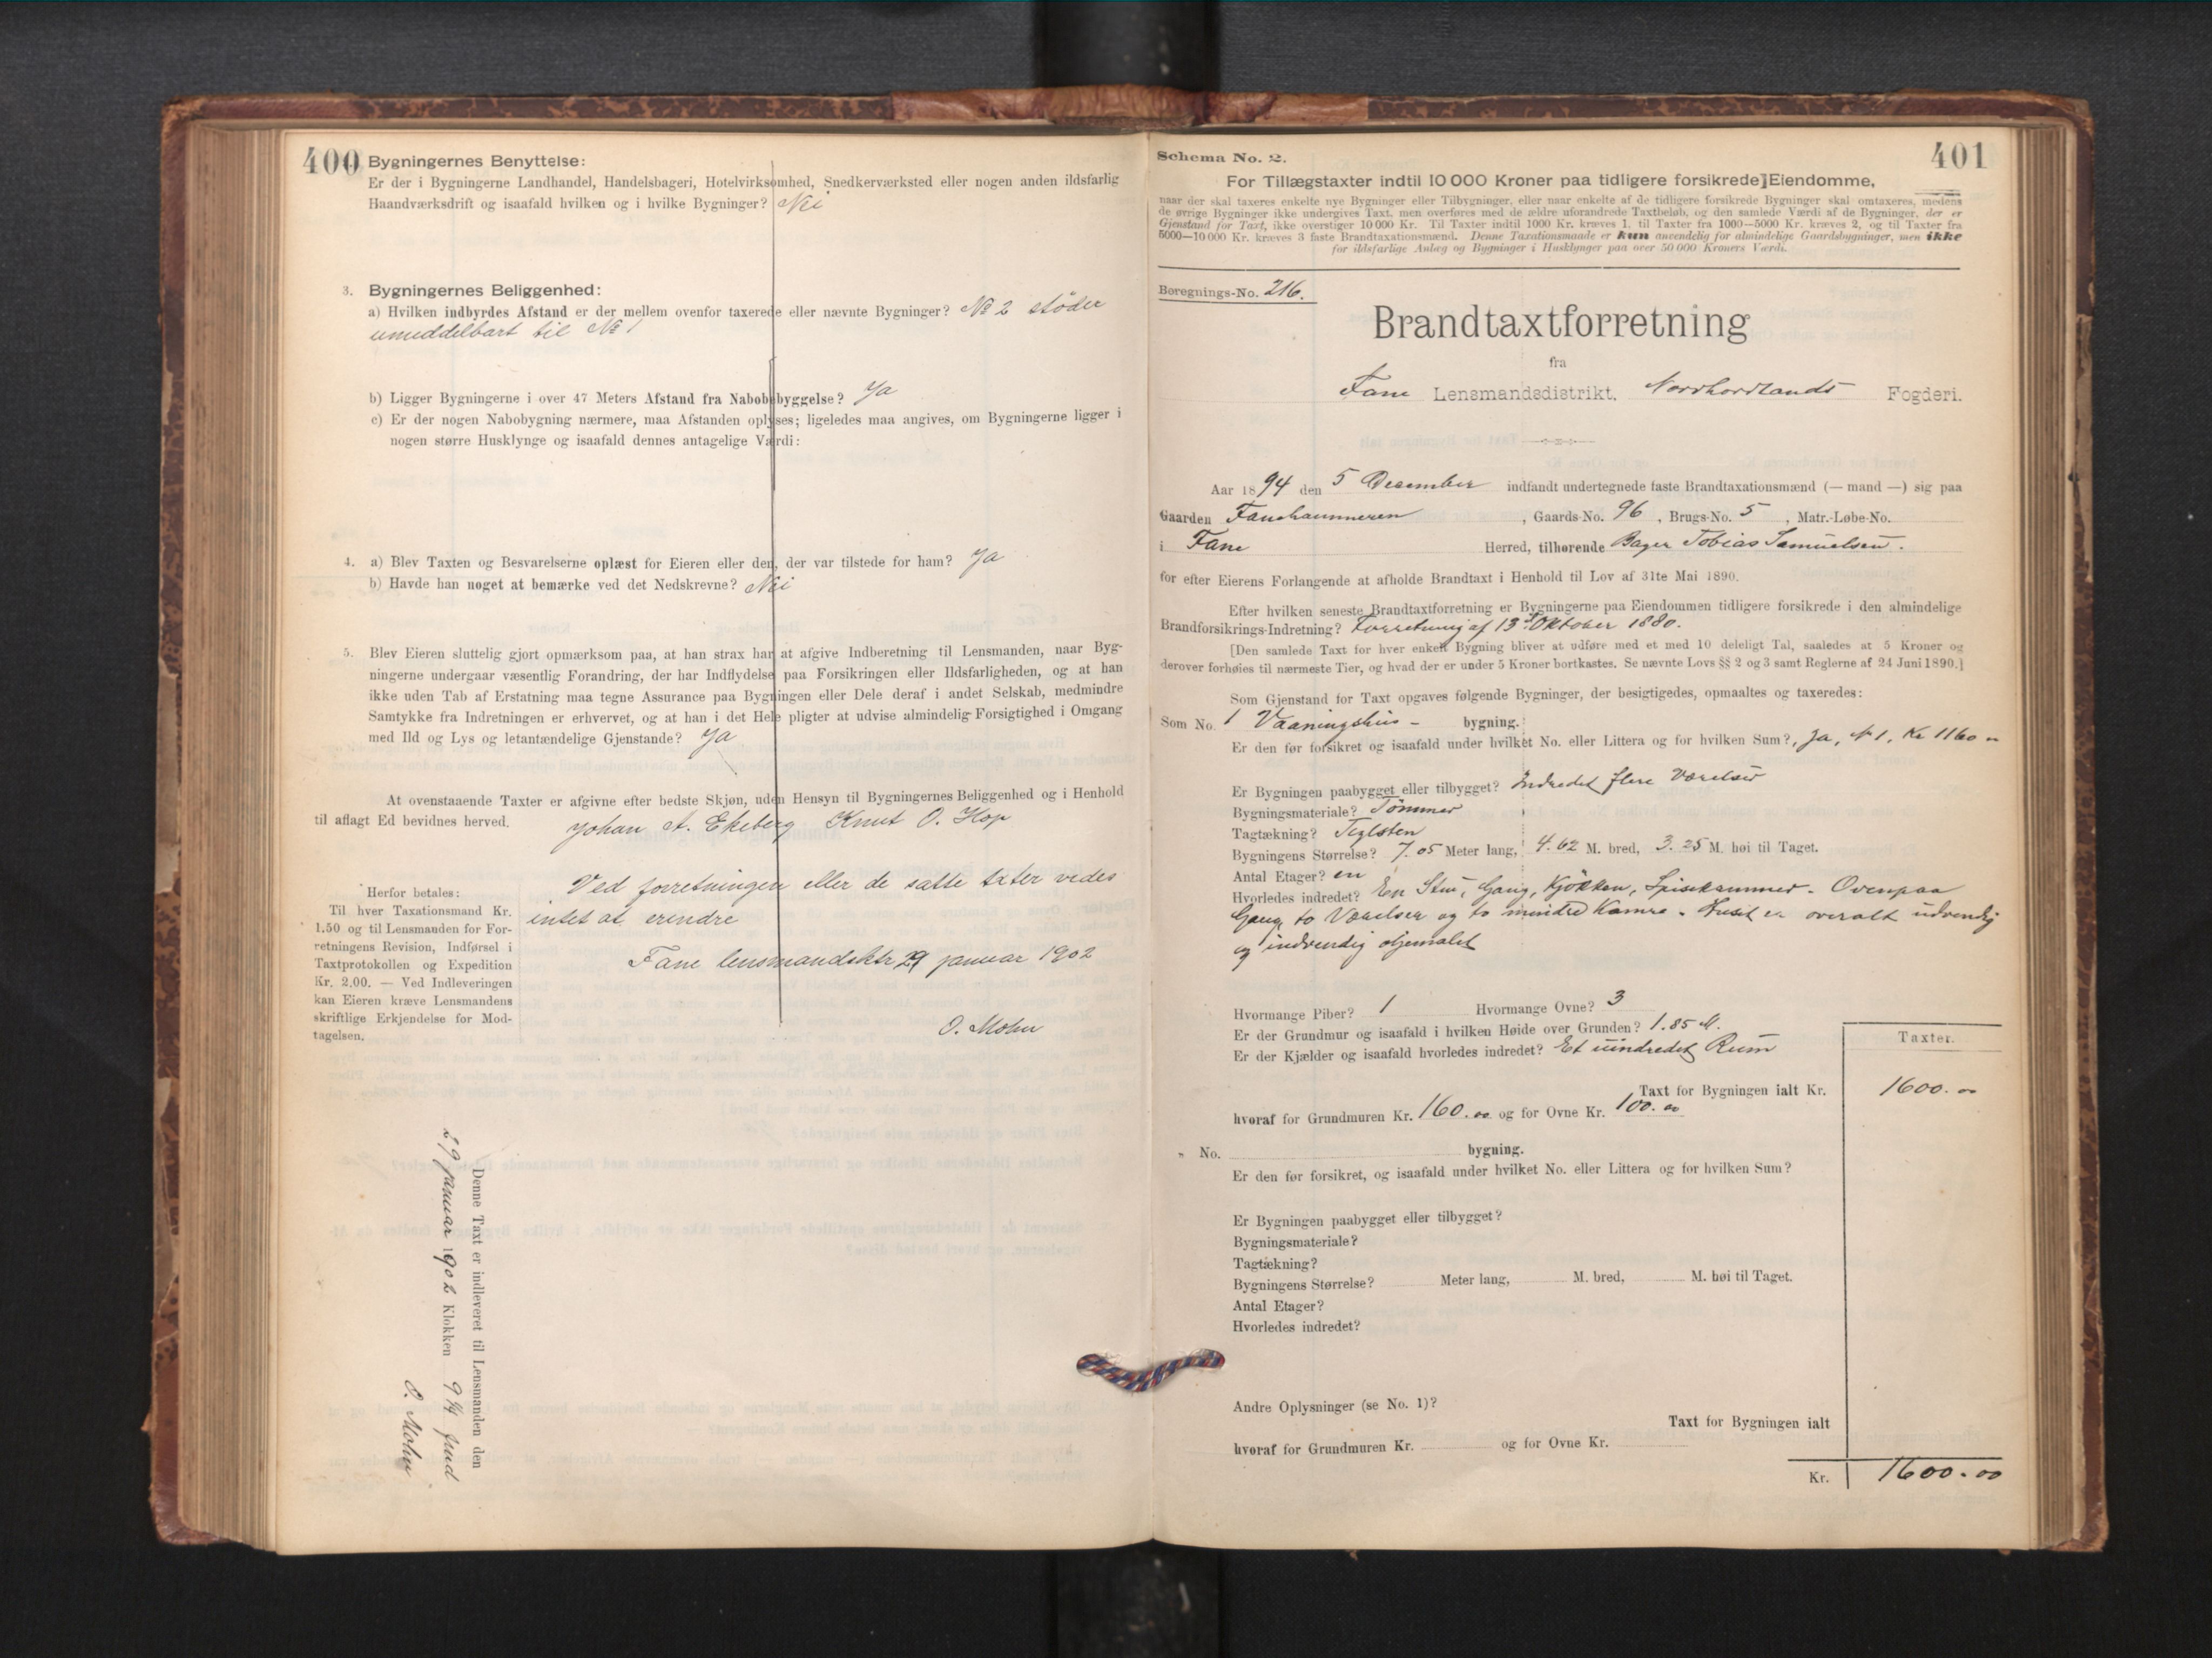 400
Bygningernes Benyttelse:
Er der i Bygningerne Landhandel, Handelsbageri, Hotelvirksomhed, Snedkerværksted eller nogen anden ildsfarlig
Haandværksdrift og isaafald hvilken og i hvilke Bygninger? Nei
3. Bygningernes Beliggenhed:
a) Hvilken indbyrdes Afstand er der mellem ovenfor taxerede eller nævnte Bygninger? No 2 støder
umiddelbart til No 1
b) Ligger Bygningerne i over 47 Meters Afstand fra Nabobebyggelse? Ja
c) Er der nogen Nabobygning nærmere, maa Afstanden oplyses; ligeledes maa angives, om Bygningerne ligger i
nogen større Husklynge og isaafald dennes antagelige Værdi:
4. a) Blev Taxten og Besvarelserne oplæst for Eieren eller den, der var tilstede for ham? Ja
b) Havde han noget at bemærke ved det Nedskrevne? Nei
5. Blev Eieren sluttelig gjort opmærksom paa, at han strax har at afgive Indberetning til Lensmanden, naar Byg-
ningerne undergaar væsentlig Forandring, der har Indflydelse paa Forsikringen eller Ildsfarligheden, og at han
ikke uden Tab af Erstatning maa tegne Assurance paa Bygningen eller Dele deraf i andet Selskab, medmindre
Samtykke fra Indretningen er erhvervet, og at han i det Hele pligter at udvise almindelig Forsigtighed i Omgang
med Ild og Lys og letantændelige Gjenstande? Ja
At ovenstaaende Taxter er afgivne efter bedste Skjøn, uden Hensyn til Bygningernes Beliggenhed og i Henhold
til aflagt Ed bevidnes herved. Johan A. Ekeberg Knut O. Hop
Herfor betales:
Til hver Taxationsmand Kr.
1.50 og til Lensmanden for For-
retningens Revision, Indførsel i
Taxtprotokollen og Expedition
Kr. 2.00. — Ved Indleveringen
kan Eieren kræve Lensmandens
skriftlige Erkjendelse for Mod-
tagelsen.
Ved forretningen eller de satte taxter vides
intet at erindre
Fane lensmandsktr 29 januar 1902
O. Mohn
Denne Taxt er indleveret til Lensmanden den
29 januar 1902 Klokken 9 1/4 fmd
O. Mohn
401
Schema No. 2.
For Tillægstaxter indtil 10 000 Kroner paa tidligere forsikrede Eiendomme,
naar der skal taxeres enkelte nye Bygninger eller Tilbygninger, eller naar enkelte af de tidligere forsikrede Bygninger skal omtaxeres, medens
de øvrige Bygninger ikke undergives Taxt, men overføres med de ældre uforandrede Taxtbeløb, og den samlede Værdi af de Bygninger, der er
Gjenstand for Taxt, ikke overstiger 10 000 Kr. Til Taxter indtil 1000 Kr. kræves 1, til Taxter fra 1000—5000 Kr. kræves 2, og til Taxter fra
5000—10 000 Kr. kræves 3 faste Brandtaxationsmænd. Denne Taxationsmaade er kun anvendelig for almindelige Gaardsbygninger, men ikke
for ildsfarlige Anlæg og Bygninger i Husklynger paa over 50 000 Kroners Værdi.
Beregnings-No. 216.
Brandtaxtforretning
fra
Fane Lensmandsdistrikt, Nordhordlands Fogderi.
Aar 1894 den 5 December indfandt undertegnede faste Brandtaxationsmænd (— mand —) sig paa
Gaarden Fanehammeren, Gaards-No. 96, Brugs-No. 5, Matr.-Løbe-No.
i Fane Herred, tilhørende Bager Tobias Samuelsen.
for efter Eierens Forlangende at afholde Brandtaxt i Henhold til Lov af 31te Mai 1890.
Efter hvilken seneste Brandtaxtforretning er Bygningerne paa Eiendommen tidligere forsikrede i den almindelige
Brandforsikrings-Indretning? Forretning af 13de Oktober 1880.
[Den samlede Taxt for hver enkelt Bygning bliver at udføre med et med 10 deleligt Tal, saaledes at 5 Kroner og
derover forhøies til nærmeste Tier, og hvad der er under 5 Kroner bortkastes. Se nævnte Lovs §§ 2 og 3 samt Reglerne af 24 Juni 1890.]
Som Gjenstand for Taxt opgaves følgende Bygninger, der besigtigedes, opmaaltes og taxeredes:
Som No. 1 Vaaningshus- bygning.
Er den før forsikret og isaafald under hvilket No. eller Littera og for hvilken Sum? Ja, No 1, Kr 1160 "
Er Bygningen paabygget eller tilbygget? Indredet flere Værelser
Bygningsmateriale? Tømmer
Tagtækning? Teglsten
Bygningens Størrelse? 7.05 Meter lang, 4.62 M. bred, 3.25 M. høi til Taget.
Antal Etager? en
Hvorledes indredet? En Stue, Gang, Kjøkken, Spisekammer. Ovenpaa
Gang, to Værelser og to mindre Kamre. Huset er overalt udvendig
og indvendig oljemalet
Hvormange Piber? 1 Hvormange Ovne? 3
Er der Grundmur og isaafald i hvilken Høide over Grunden? 1.85 M.
Er der Kjælder og isaafald hvorledes indredet? Et uindredet Rum
Taxter.
Taxt for Bygningen ialt Kr. 1600.00
hvoraf for Grundmuren Kr. 160.00 og for Ovne Kr. 100.00
" No. bygning.
Er den før forsikret, og isaafald under hvilket No. eller Littera og for hvilken Sum?
Er Bygningen paabygget eller tilbygget?
Bygningsmateriale?
Tagtækning?
Bygningens Størrelse? Meter lang, M. bred, M. høi til Taget.
Antal Etager?
Hvorledes indredet?
Andre Oplysninger (se No. 1)?
Taxt for Bygningen ialt
hvoraf for Grundmuren Kr. og for Ovne Kr.
Kr. 1600.00